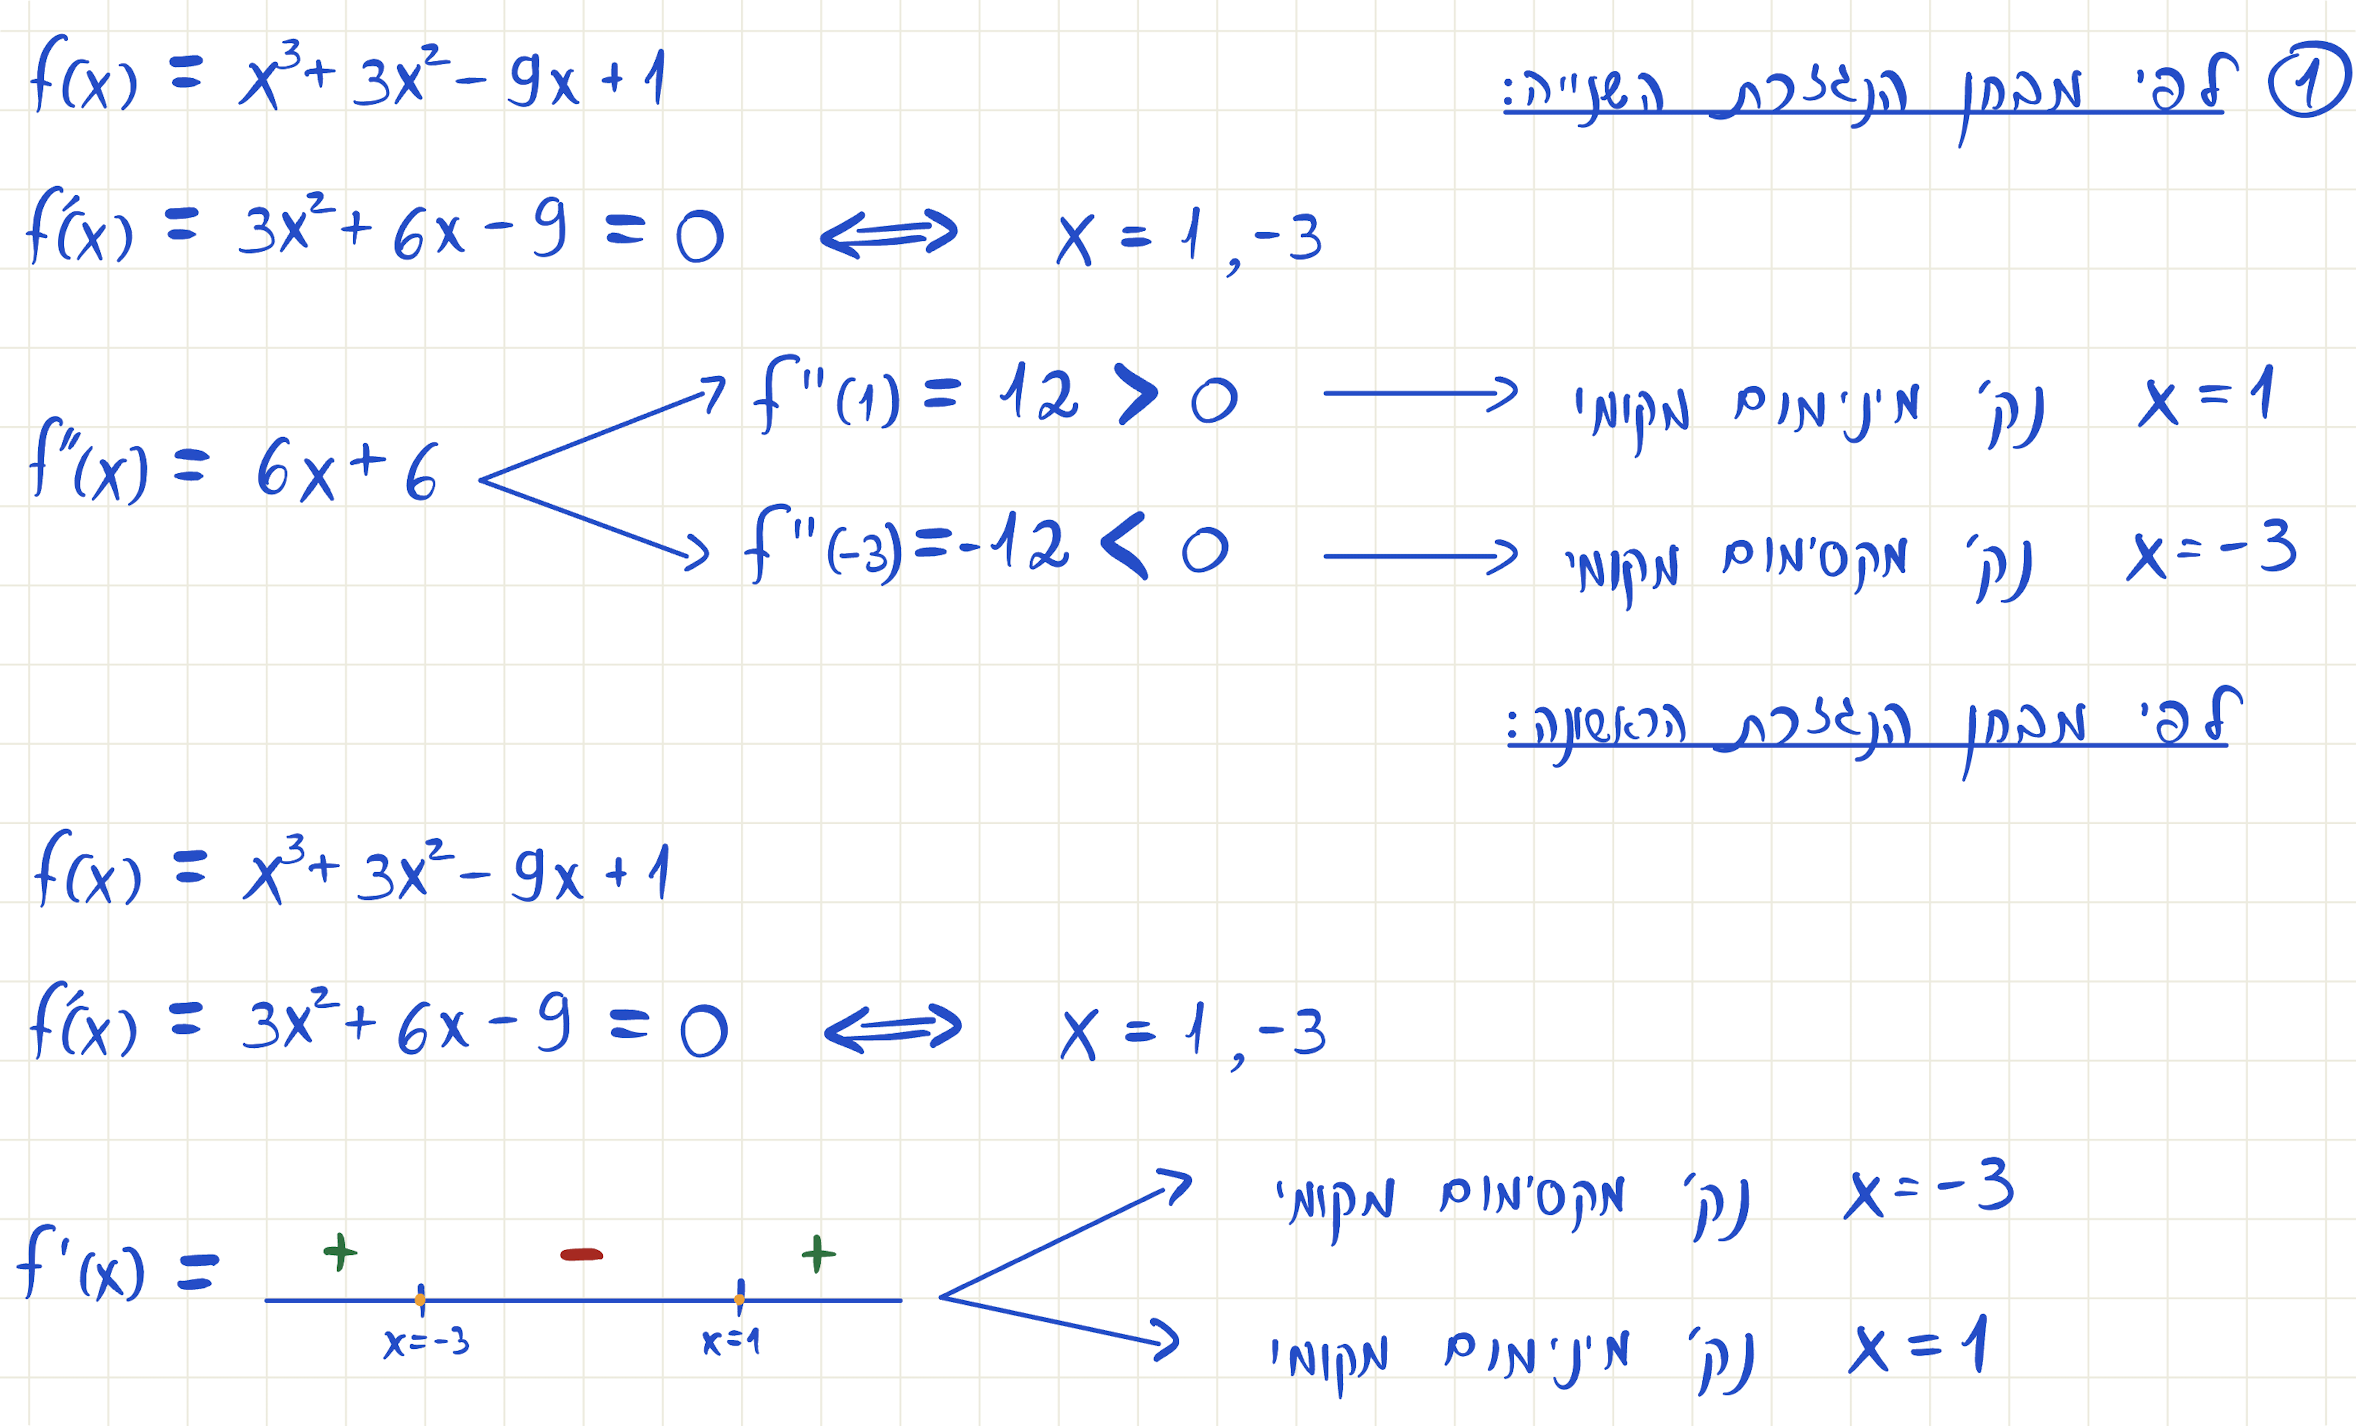 ① לפי מבחן הנגזרת השנייה:
f(x) = x³ + 3x² - 9x + 1
f'(x) = 3x² + 6x - 9 = 0 ⟺ x = 1, -3
f''(1) = 12 > 0 → x = 1 נק' מינימום מקומי
f''(x) = 6x + 6
f''(-3) = -12 < 0 → x = -3 נק' מקסימום מקומי
לפי מבחן הנגזרת הראשונה:
f(x) = x³ + 3x² - 9x + 1
f'(x) = 3x² + 6x - 9 = 0 ⟺ x = 1, -3
x = -3 נק' מקסימום מקומי
f'(x) = + - +
x = -3 x = 1
x = 1 נק' מינימום מקומי